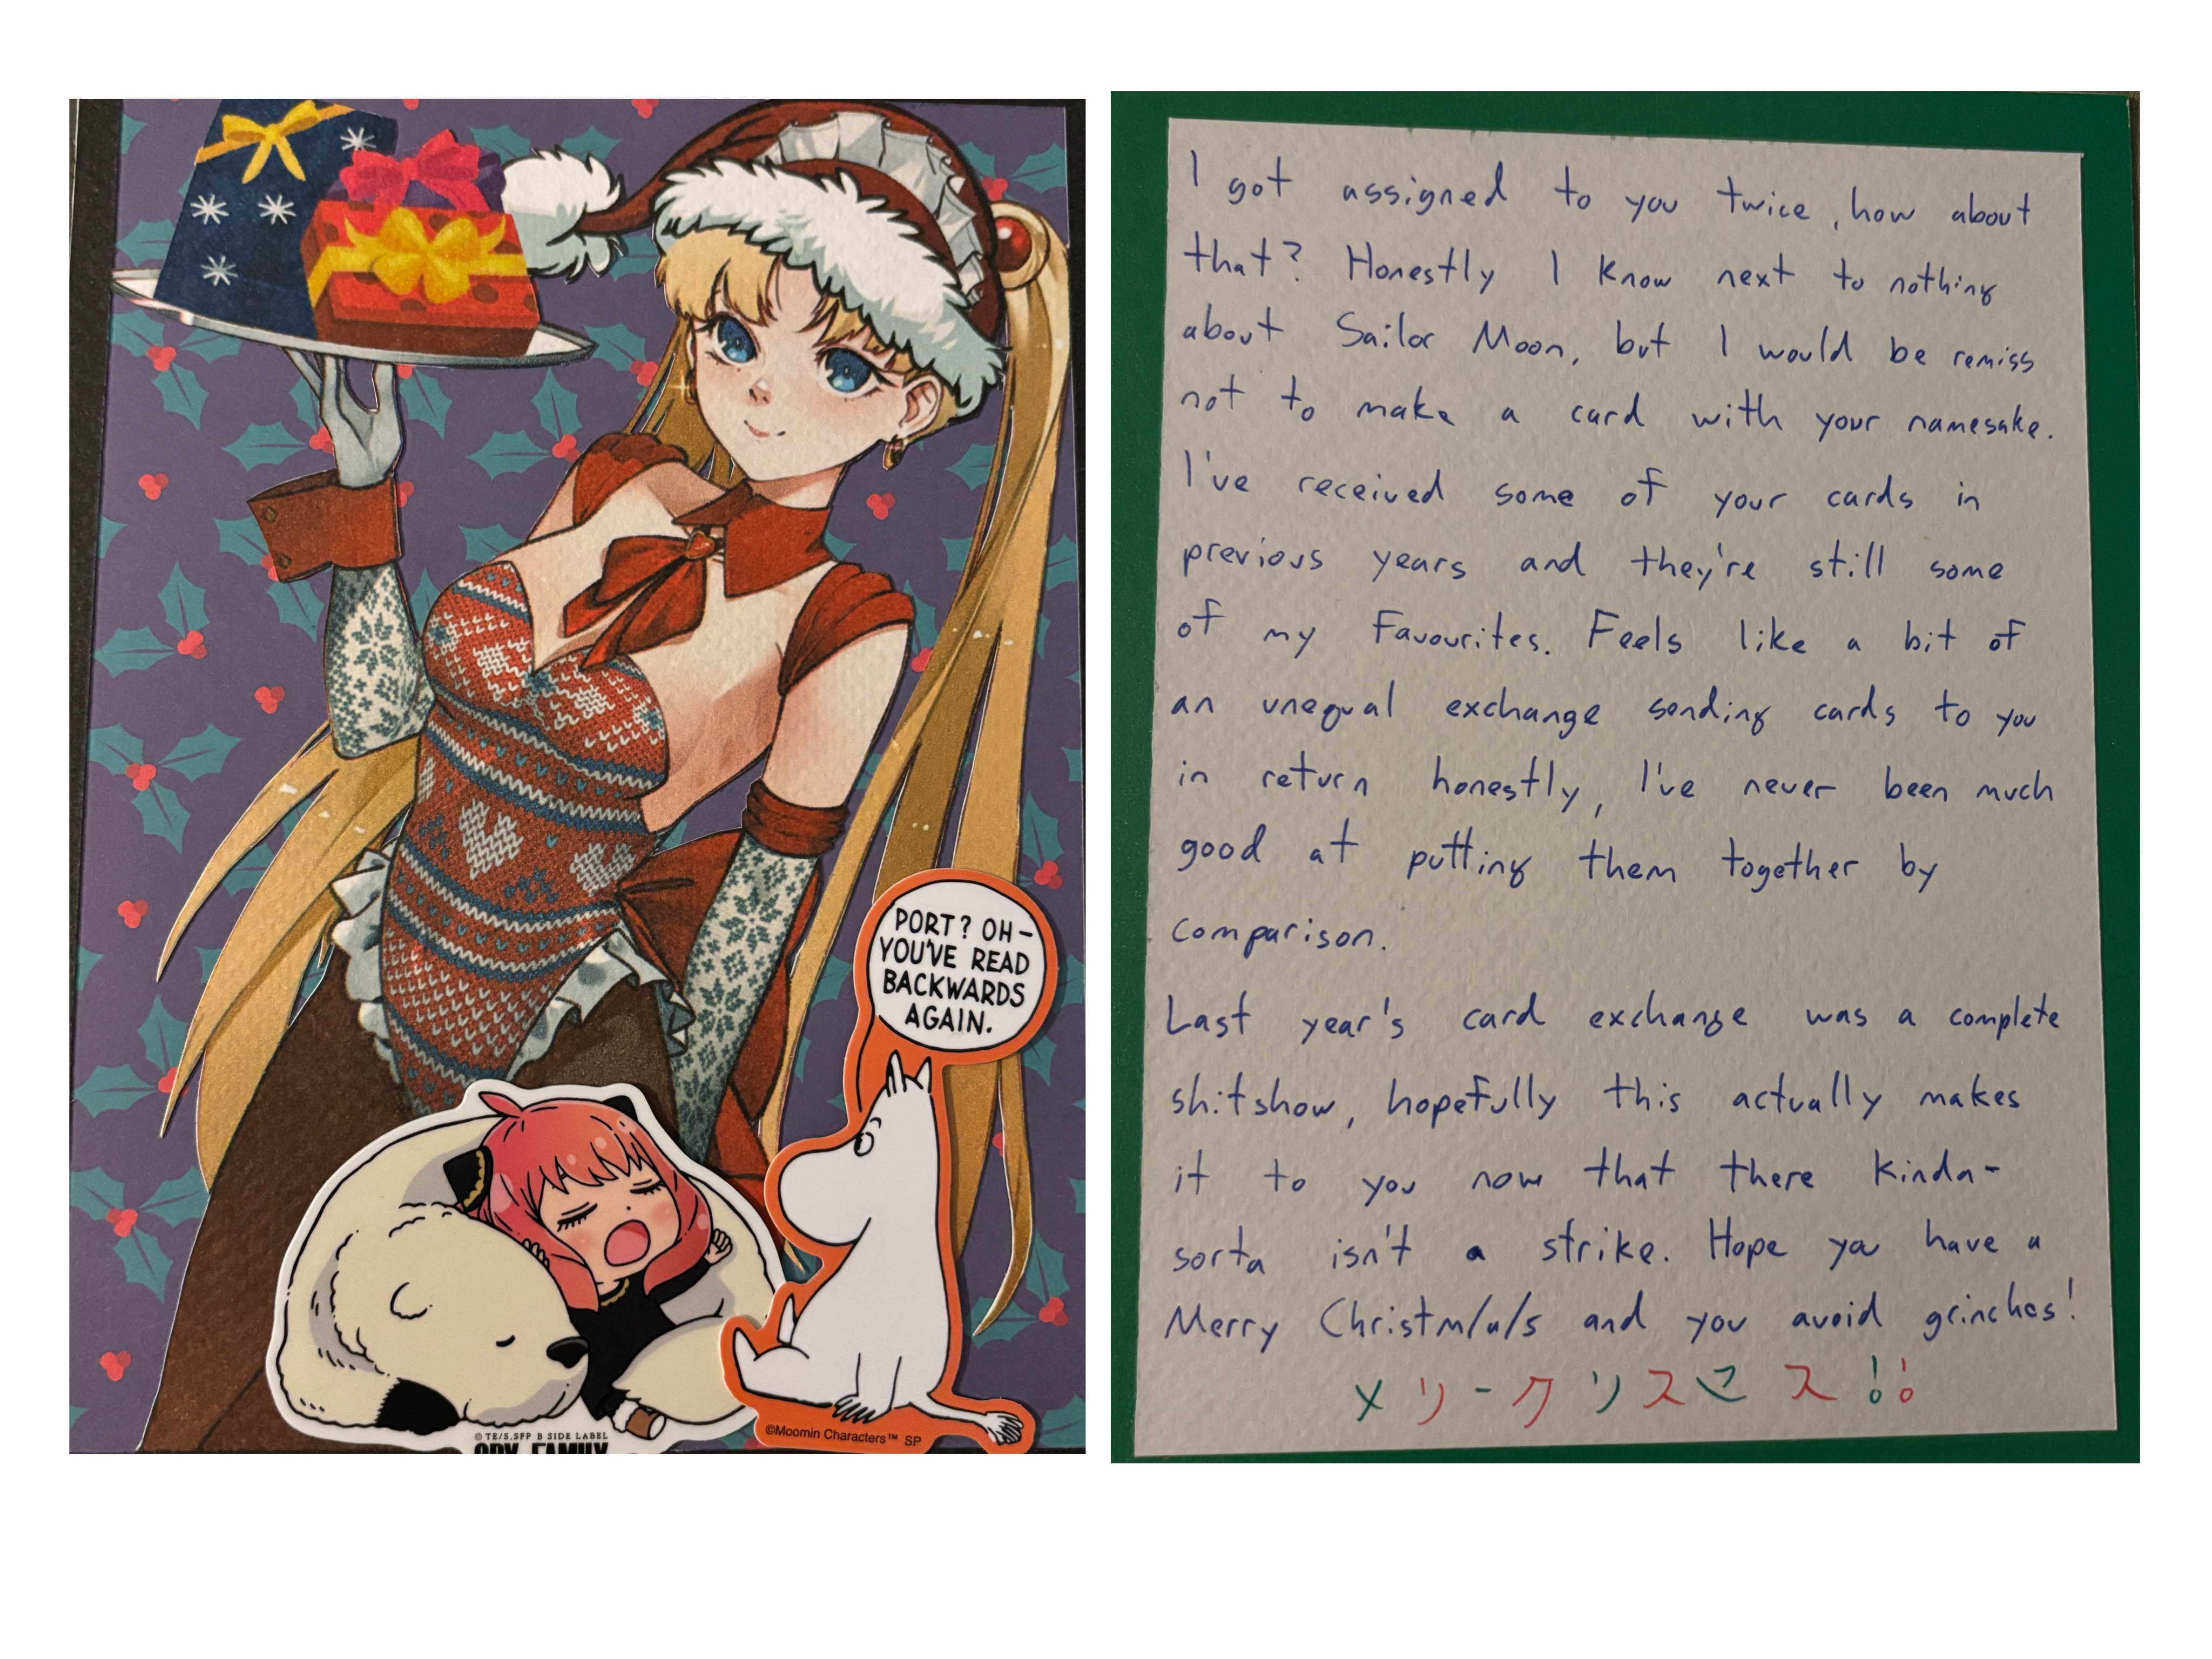 PORT? OH-
YOU'VE READ
BACKWARDS
AGAIN.
© TE/S.SFP B SIDE LABEL
SPY FAMILY
©Moomin Characters™ SP
I got assigned to you twice, how about
that? Honestly I know next to nothing
about Sailor Moon, but I would be remiss
not to make a card with your namesake.
I've received some of your cards in
previous years and they're still some
of my favourites. Feels like a bit of
an unequal exchange sending cards to you
in return honestly, I've never been much
good at putting them together by
comparison.
Last year's card exchange was a complete
shitshow, hopefully this actually makes
it to you now that there kinda-
sorta isn't a strike. Hope ya have a
Merry Christm/a/s and you avoid grinches!
メリークリスマス!!